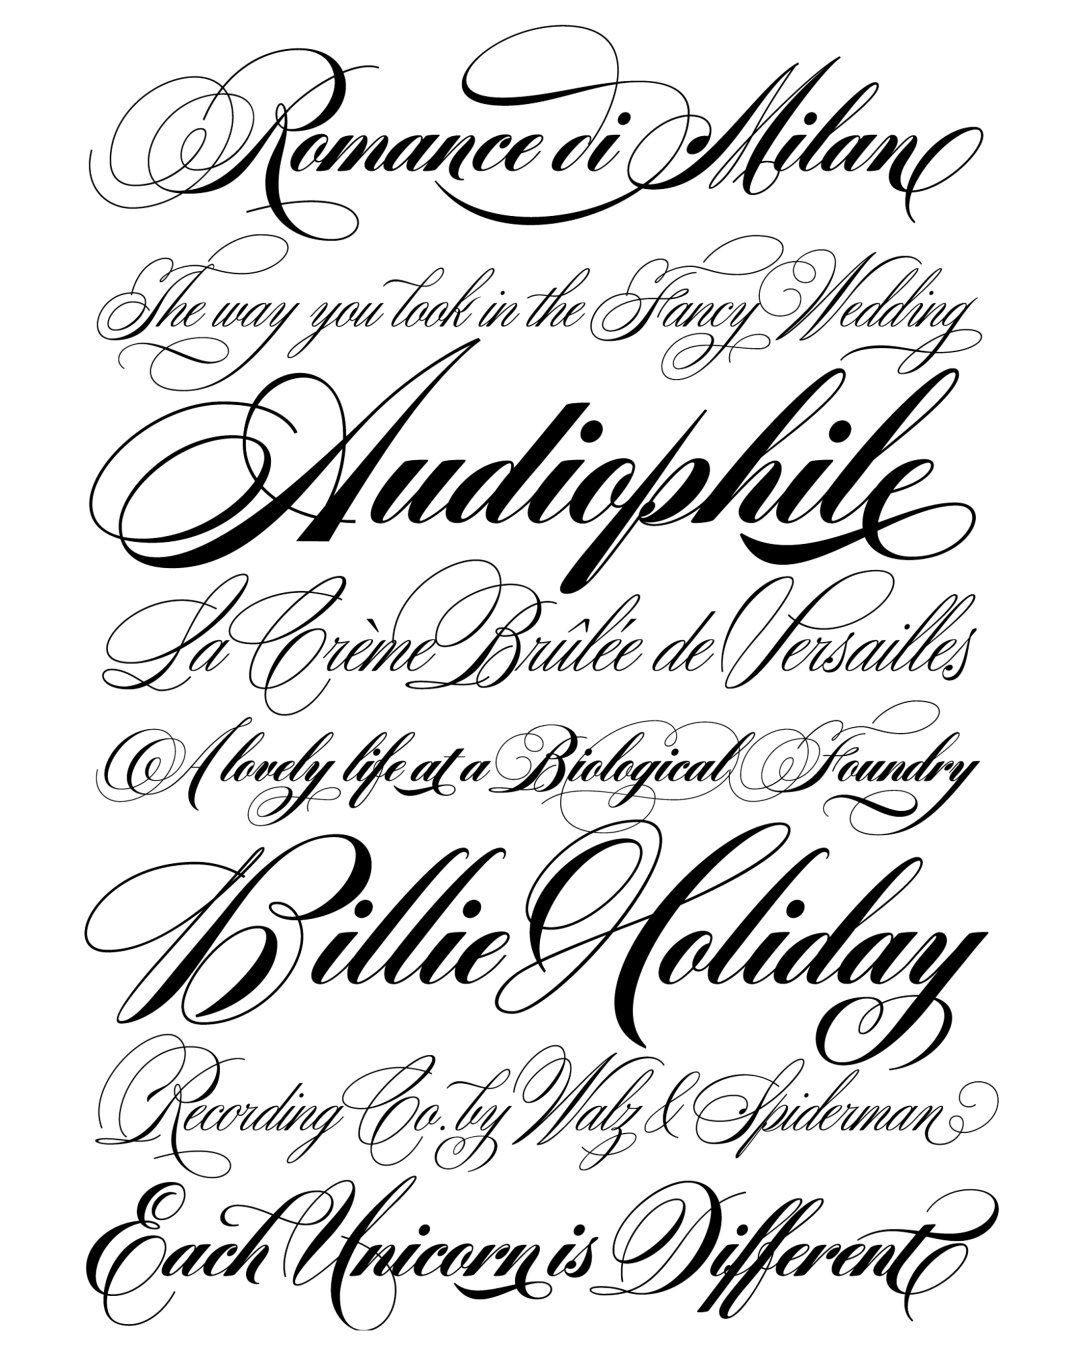 Romance di Milan
The way you look in the Fancy Wedding
Audiophile
La Crème Brûlée de Versailles
A lovely life at a Biological Foundry
Billie Holiday
Recording Co. by Walz & Spiderman
Each Unicorn is Different